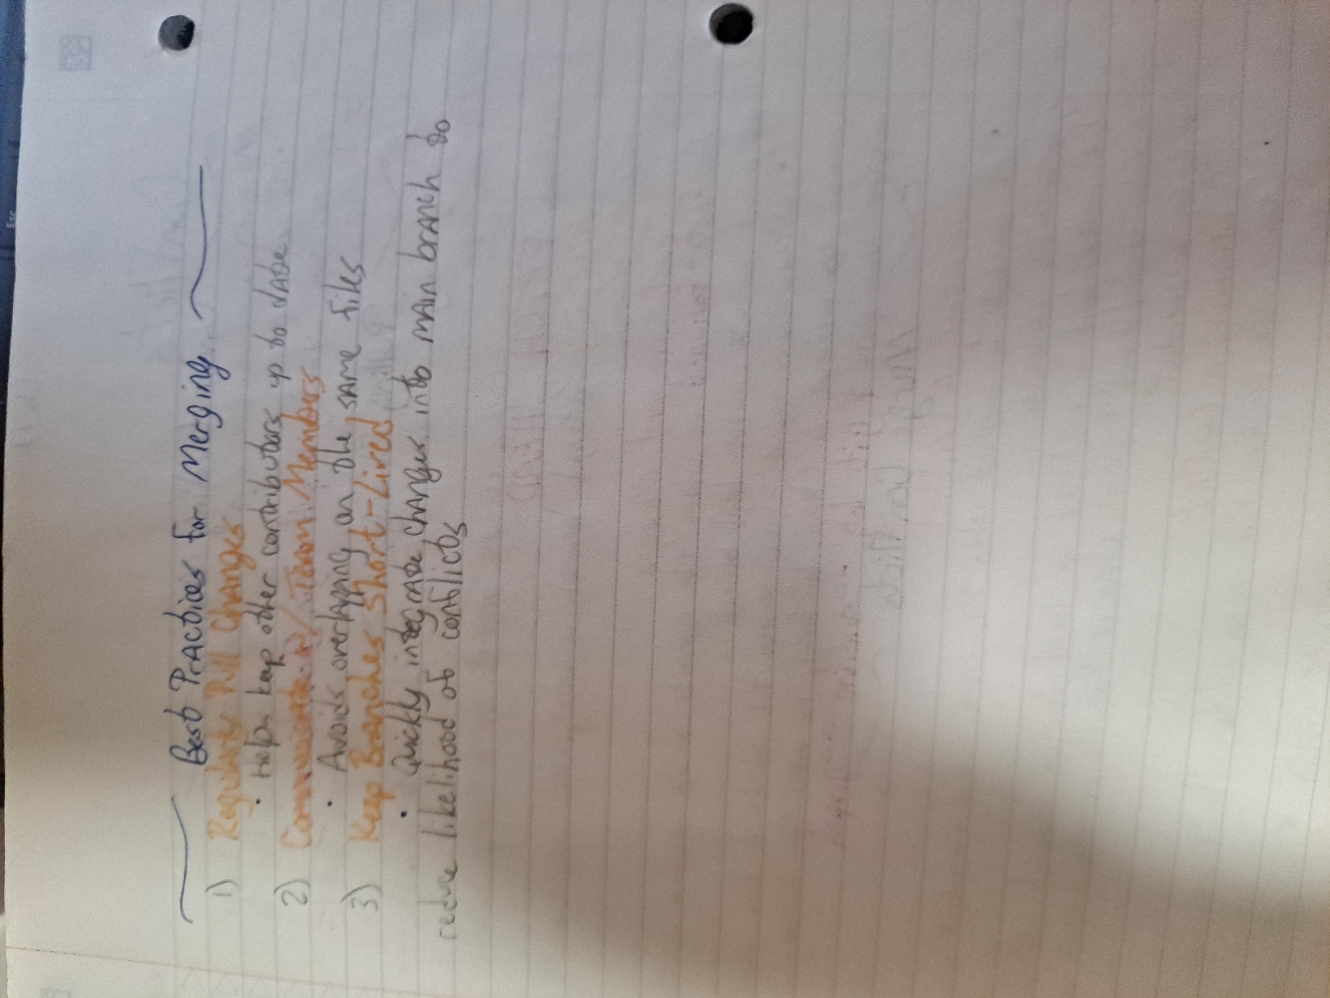 Best Practices for Merging
1) Regularly Pull Changes
• Helps keep other contributors up to date
2) Communicate w/ Team Members
• Avoids overlapping on the same files
3) Keep Branches Short-Lived
• Quickly integrate changes into main branch to
reduce likelihood of conflicts
Esc